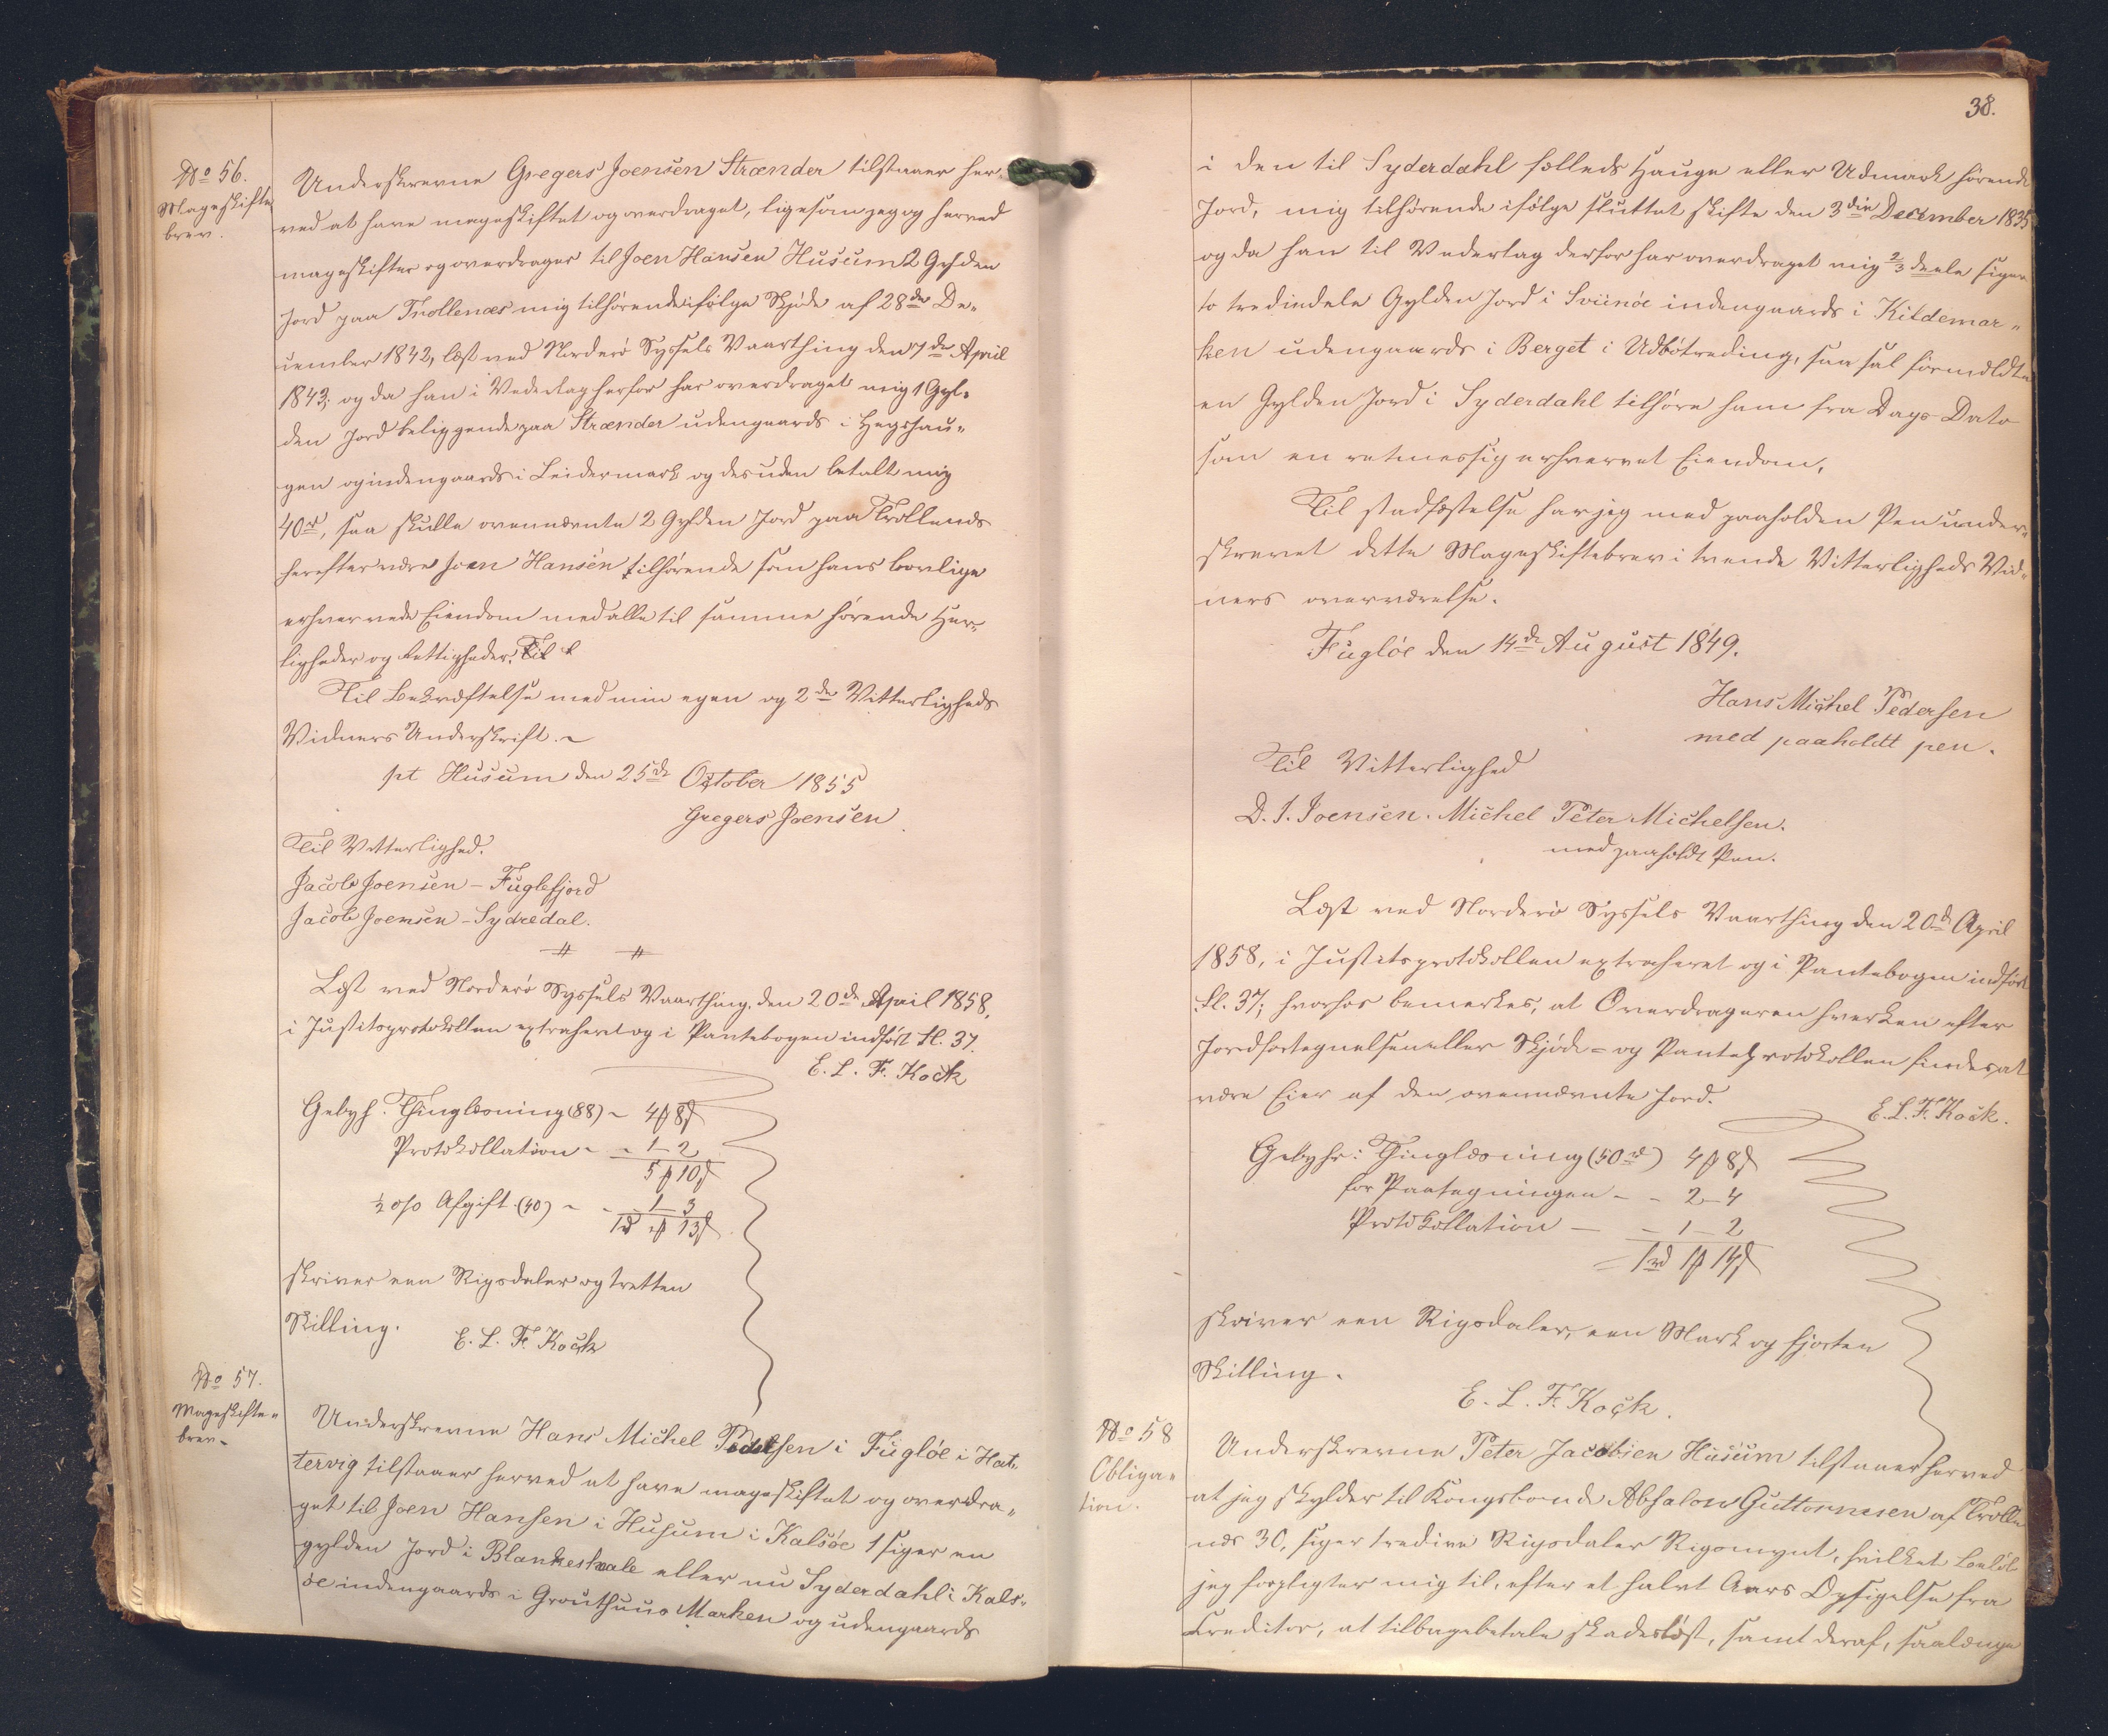 No 56.
Mageskifte
brev.
Underskrevne Gregers Joensen Strænder tilstaaer her
ved at have mageskiftet og overdraget, ligesom jeg og herved
mageskifter og overdrager til Joen Hansen Husum 2 Gylden
Jord paa Trollenæs mig tilhørende ifølge Skjøde af 28de De-
cember 1842, læst ved Norderø Syssels Vaarthing den 7de April
1843; og da han i Vederlag herfor har overdraget mig 1 Gyl-
den Jord beliggende paa Strænder udengaards i Hegshau-
gen og indengaards i Leidermark og desuden betalt mig
40rd, saa skulle ovennævnte 2 Gylden Jord paa Trollenæs
herefter være Joen Hansen tilhørende som hans lovlige
erhvervede Eiendom med alle til samme hørende Her-
ligheder og Rettigheder. Til
Til Bekræftelse med min egen og 2de Vitterligheds
Vidners Underskrift. -
pt Husum den 25de October 1855
Gregers Joensen
Til Vitterlighed.
Jacob Joensen - Fuglefjord
Jacob Joensen - Sydredal.
Læst ved Norderø Syssels Vaarthing den 20de April 1858,
i Justitsprotokollen extraheret og i Pantebogen indført Fl. 37.
E. L. F. Kock
Gebyh. Thinglæsning (88) - 4 # 8 ß
Protokollation - - 1 - 2
5 # 10 ß
½ o/o Afgift (40) - - 1 - 3
1rd " # 13 ß
skriver een Rigsdaler og tretten
Skilling.
E. L. F. Kock
No 57.
Mageskifte-
brev.
Underskrevne Hans Michel Pedersen i Fugløe i Hat-
tervig tilstaaer herved at have mageskiftet og overdra-
get til Joen Hansen i Husum i Kalsøe 1 siger en
gylden Jord i Blankeskaale eller nu Syderdahl i Kals-
øe indengaards i Grouthuus Marken og udengaards
38.
i den til Syderdahl fælleds Hauge eller Udmark hørende
Jord, mig tilhørende ifølge sluttet skifte den 3die December 1835
og da han til Vederlag derfor har overdraget mig 2/3 deele siger
to trediedele Gylden Jord i Sviinøe indengaards i Kildemar-
ken udengaards i Berget i Udbøtreding, saa sal formeldte
en Gylden Jord i Syderdahl tilhøre ham fra Dags Dato
som en retmessig erhvervet Eiendom.
Til stadfæstelse har jeg med paaholden Pen under-
skrevet dette Mageskiftebrev i tvende Vitterligheds Vid-
ners overværelse.
Fugløe den 14de August 1849.
Hans Michel Pedersen
med paaholdt pen.
Til Vitterlighed
D. J. Joensen. Michel Peter Michelsen.
med paaholdt Pen.
Læst ved Norderø Syssels Vaarthing den 20de April
1858, i Justitsprotokollen extraheret og i Pantebogen indført
Fl. 37; hvorhos bemerkes, at Overdrageren hverken efter
Jordfortegnelsen eller Skjøde- og Panteprotokollen findes at
være Eier af den ovennævnte Jord.
E. L. F. Kock.
Gebyhr: Thinglæsning (50rd) 4 # 8 ß
for Paategningen - - 2 - 4
Protokollation - - 1 - 2
1rd 1 # 14 ß
skriver een Rigsdaler, een Mark og fjorten
Skilling.
E. L. F. Kock.
No 58
Obliga-
tion.
Underskrevne Peter Jacobsen Husum tilstaaer herved
at jeg skylder til Kongsbonde Absalon Guttormsen af Trolle
næs 30, siger tredive Rigsdaler Rigsmynt, hvilket Beløb
jeg forpligter mig til, efter et halvt Aars Opsigelse fra
Creditor, at tilbagebetale skadesløst, samt deraf, saalænge